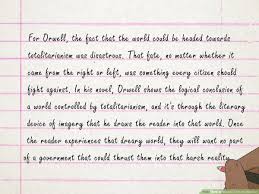 For Orwell, the fact that the world could be headed towards
totalitarianism was disastrous. That fate, no matter whether it
came from the right or left, was something every citizen should
fight against. In his novel, Orwell shows the logical conclusion
of a world controlled by totalitarianism, and it's through the literary
device of imagery that he draws the reader into that world. Once
the reader experiences that dreary world, they will want no part
of a government that could thrust them into that harsh reality.